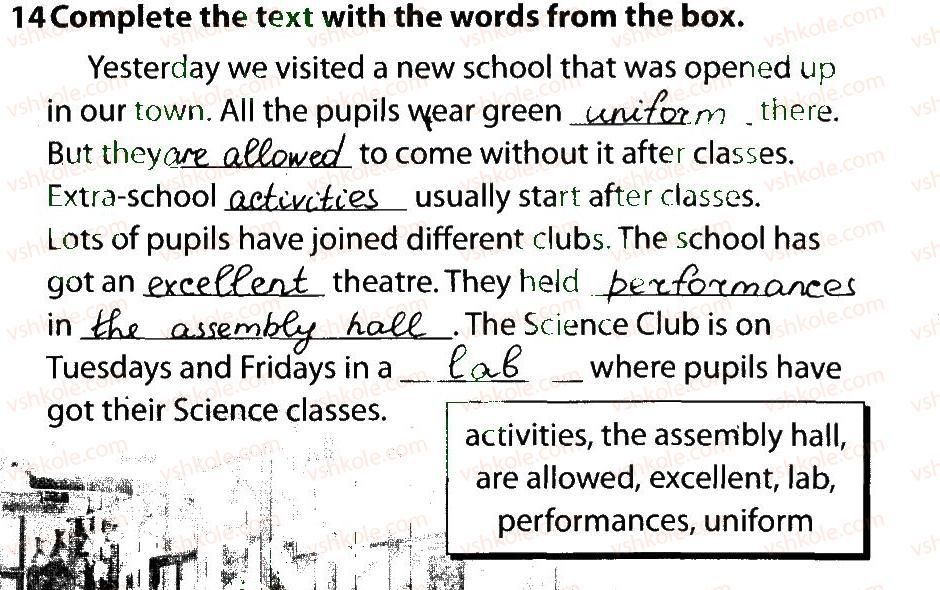 14 Complete the text with the words from the box.
Yesterday we visited a new school that was opened up
in our town. All the pupils wear green uniform there.
But they are allowed to come without it after classes.
Extra-school activities usually start after classes.
Lots of pupils have joined different clubs. The school has
got an excellent theatre. They held performances
in the assembly hall. The Science Club is on
Tuesdays and Fridays in a lab where pupils have
got their Science classes.
activities, the assembly hall,
are allowed, excellent, lab,
performances, uniform
vshkole.com